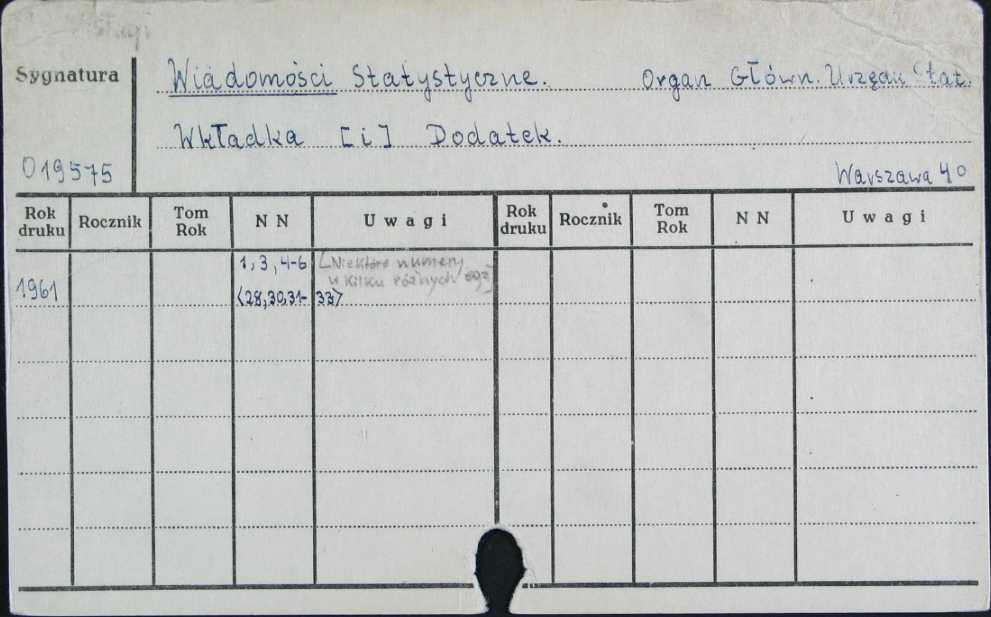 Sygnatura
Wiadomości Statystyczne. Organ Główn. Urzędu Stat.
Wkładka [i] Dodatek.
019575
Warszawa 4°
Rok druku Rocznik Tom Rok N N U w a g i Rok druku Rocznik Tom Rok N N U w a g i
1, 3, 4-6 [Niektóre numery
w kilku różnych egz]
1961 <28,30,31-33>